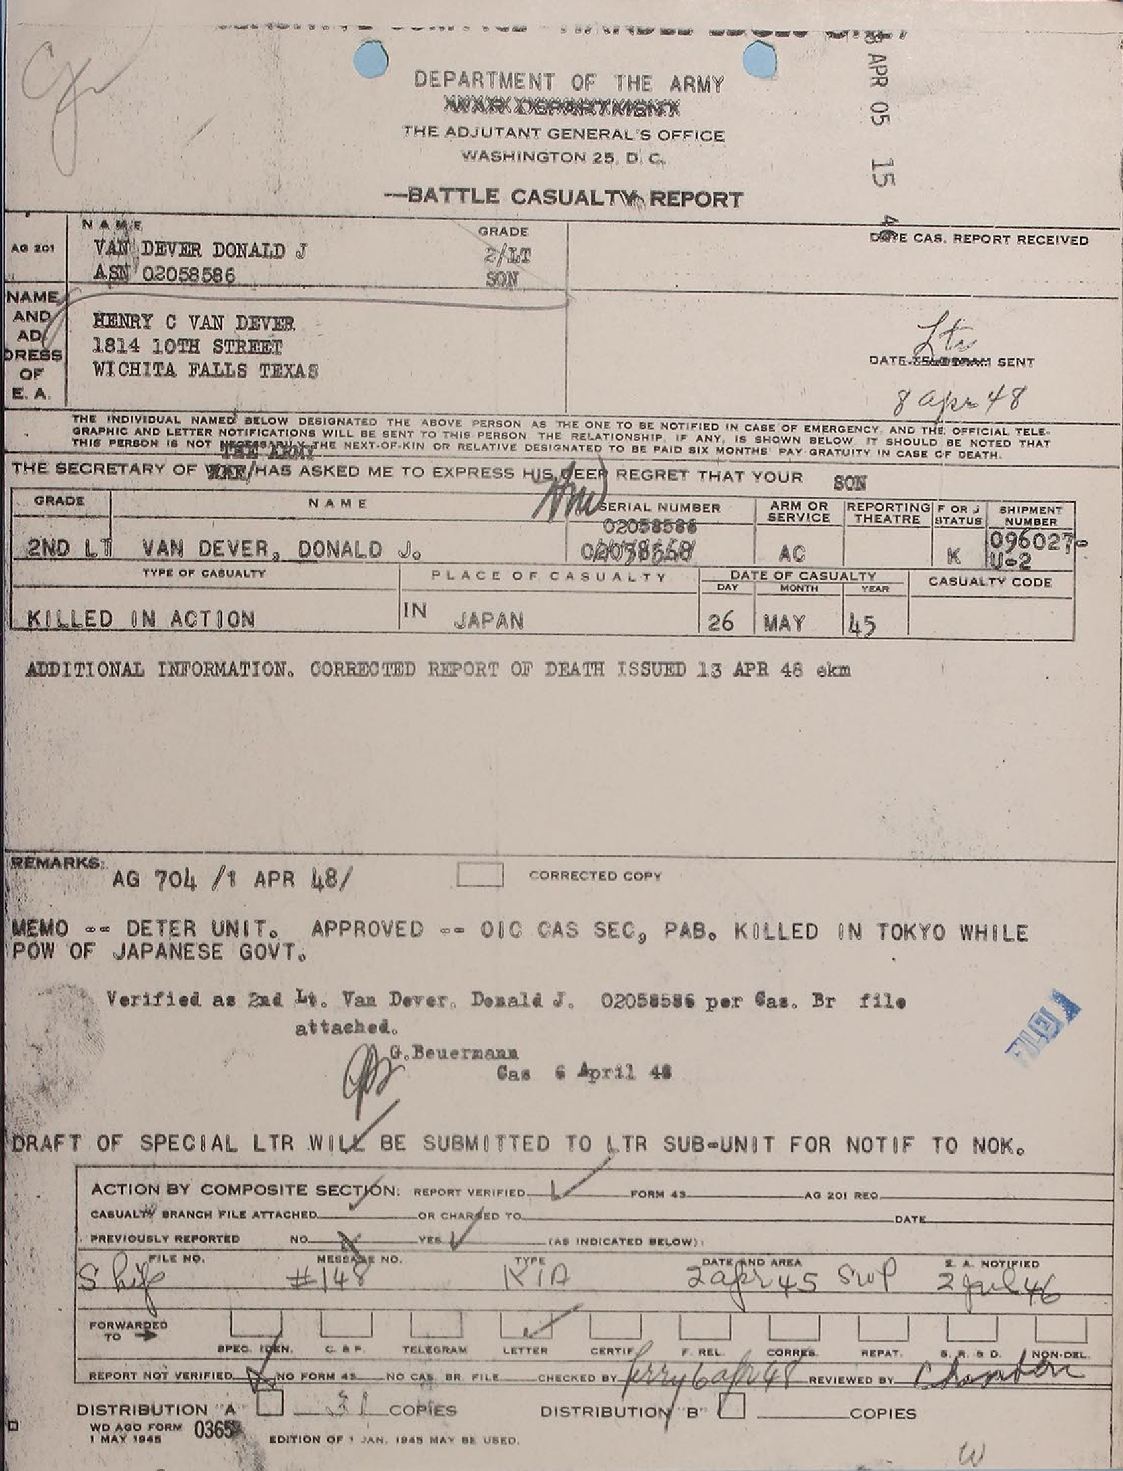 8 APR 05 15 48
DEPARTMENT OF THE ARMY
WAR DEPARTMENT
THE ADJUTANT GENERAL'S OFFICE
WASHINGTON 25, D. C.
—BATTLE CASUALTY REPORT
AG 201
NAME
GRADE
DATE CAS. REPORT RECEIVED
VAN DEVER DONALD J 2/LT
ASN 02058586 SON
NAME AND ADDRESS OF E. A.
HENRY C VAN DEVER
1814 10TH STREET
WICHITA FALLS TEXAS
Ltr
DATE TELEGRAM SENT
8 Apr 48
THE INDIVIDUAL NAMED BELOW DESIGNATED THE ABOVE PERSON AS THE ONE TO BE NOTIFIED IN CASE OF EMERGENCY, AND THE OFFICIAL TELE-
GRAPHIC AND LETTER NOTIFICATIONS WILL BE SENT TO THIS PERSON. THE RELATIONSHIP, IF ANY, IS SHOWN BELOW. IT SHOULD BE NOTED THAT
THIS PERSON IS NOT NECESSARILY THE NEXT-OF-KIN OR RELATIVE DESIGNATED TO BE PAID SIX MONTHS' PAY GRATUITY IN CASE OF DEATH.
THE ARMY
THE SECRETARY OF WAR/HAS ASKED ME TO EXPRESS HIS DEEP REGRET THAT YOUR SON
GRADE NAME SERIAL NUMBER ARM OR SERVICE REPORTING THEATRE F OR J STATUS SHIPMENT NUMBER
02058586
2ND LT VAN DEVER, DONALD J. 02058668 AC K 096027- U-2
TYPE OF CASUALTY PLACE OF CASUALTY DATE OF CASUALTY CASUALTY CODE
DAY MONTH YEAR
KILLED IN ACTION IN JAPAN 26 MAY 45
ADDITIONAL INFORMATION. CORRECTED REPORT OF DEATH ISSUED 13 APR 48 ekm
REMARKS:
AG 704 /1 APR 48/ CORRECTED COPY
MEMO -- DETER UNIT. APPROVED -- OIC CAS SEC, PAB. KILLED IN TOKYO WHILE
POW OF JAPANESE GOVT.
Verified as 2nd Lt. Van Dever. Donald J. 02058586 per Cas. Br file
attached.
G.Beuermann
Cas 6 April 48
FILED
DRAFT OF SPECIAL LTR WILL BE SUBMITTED TO LTR SUB-UNIT FOR NOTIF TO NOK.
ACTION BY COMPOSITE SECTION: REPORT VERIFIED FORM 43 AG 201 REQ.
CASUALTY BRANCH FILE ATTACHED OR CHARGED TO DATE
PREVIOUSLY REPORTED NO X YES (AS INDICATED BELOW):
FILE NO. MESSAGE NO. TYPE DATE AND AREA E. A. NOTIFIED
#148 KIA 2 Apr 45 SWP 2 Jul 46
FORWARDED TO
SPEC. IDEN. C. & P. TELEGRAM LETTER CERTIF. F. REL. CORRES. REPAT. S. R. & D. NON-DEL.
REPORT NOT VERIFIED NO FORM 43 NO CAS. BR. FILE CHECKED BY Perry 6 Apr 48 REVIEWED BY Chambers
DISTRIBUTION "A" 31 COPIES DISTRIBUTION "B" COPIES
WD AGO FORM 0365
1 MAY 1945
EDITION OF 1 JAN. 1945 MAY BE USED.
W